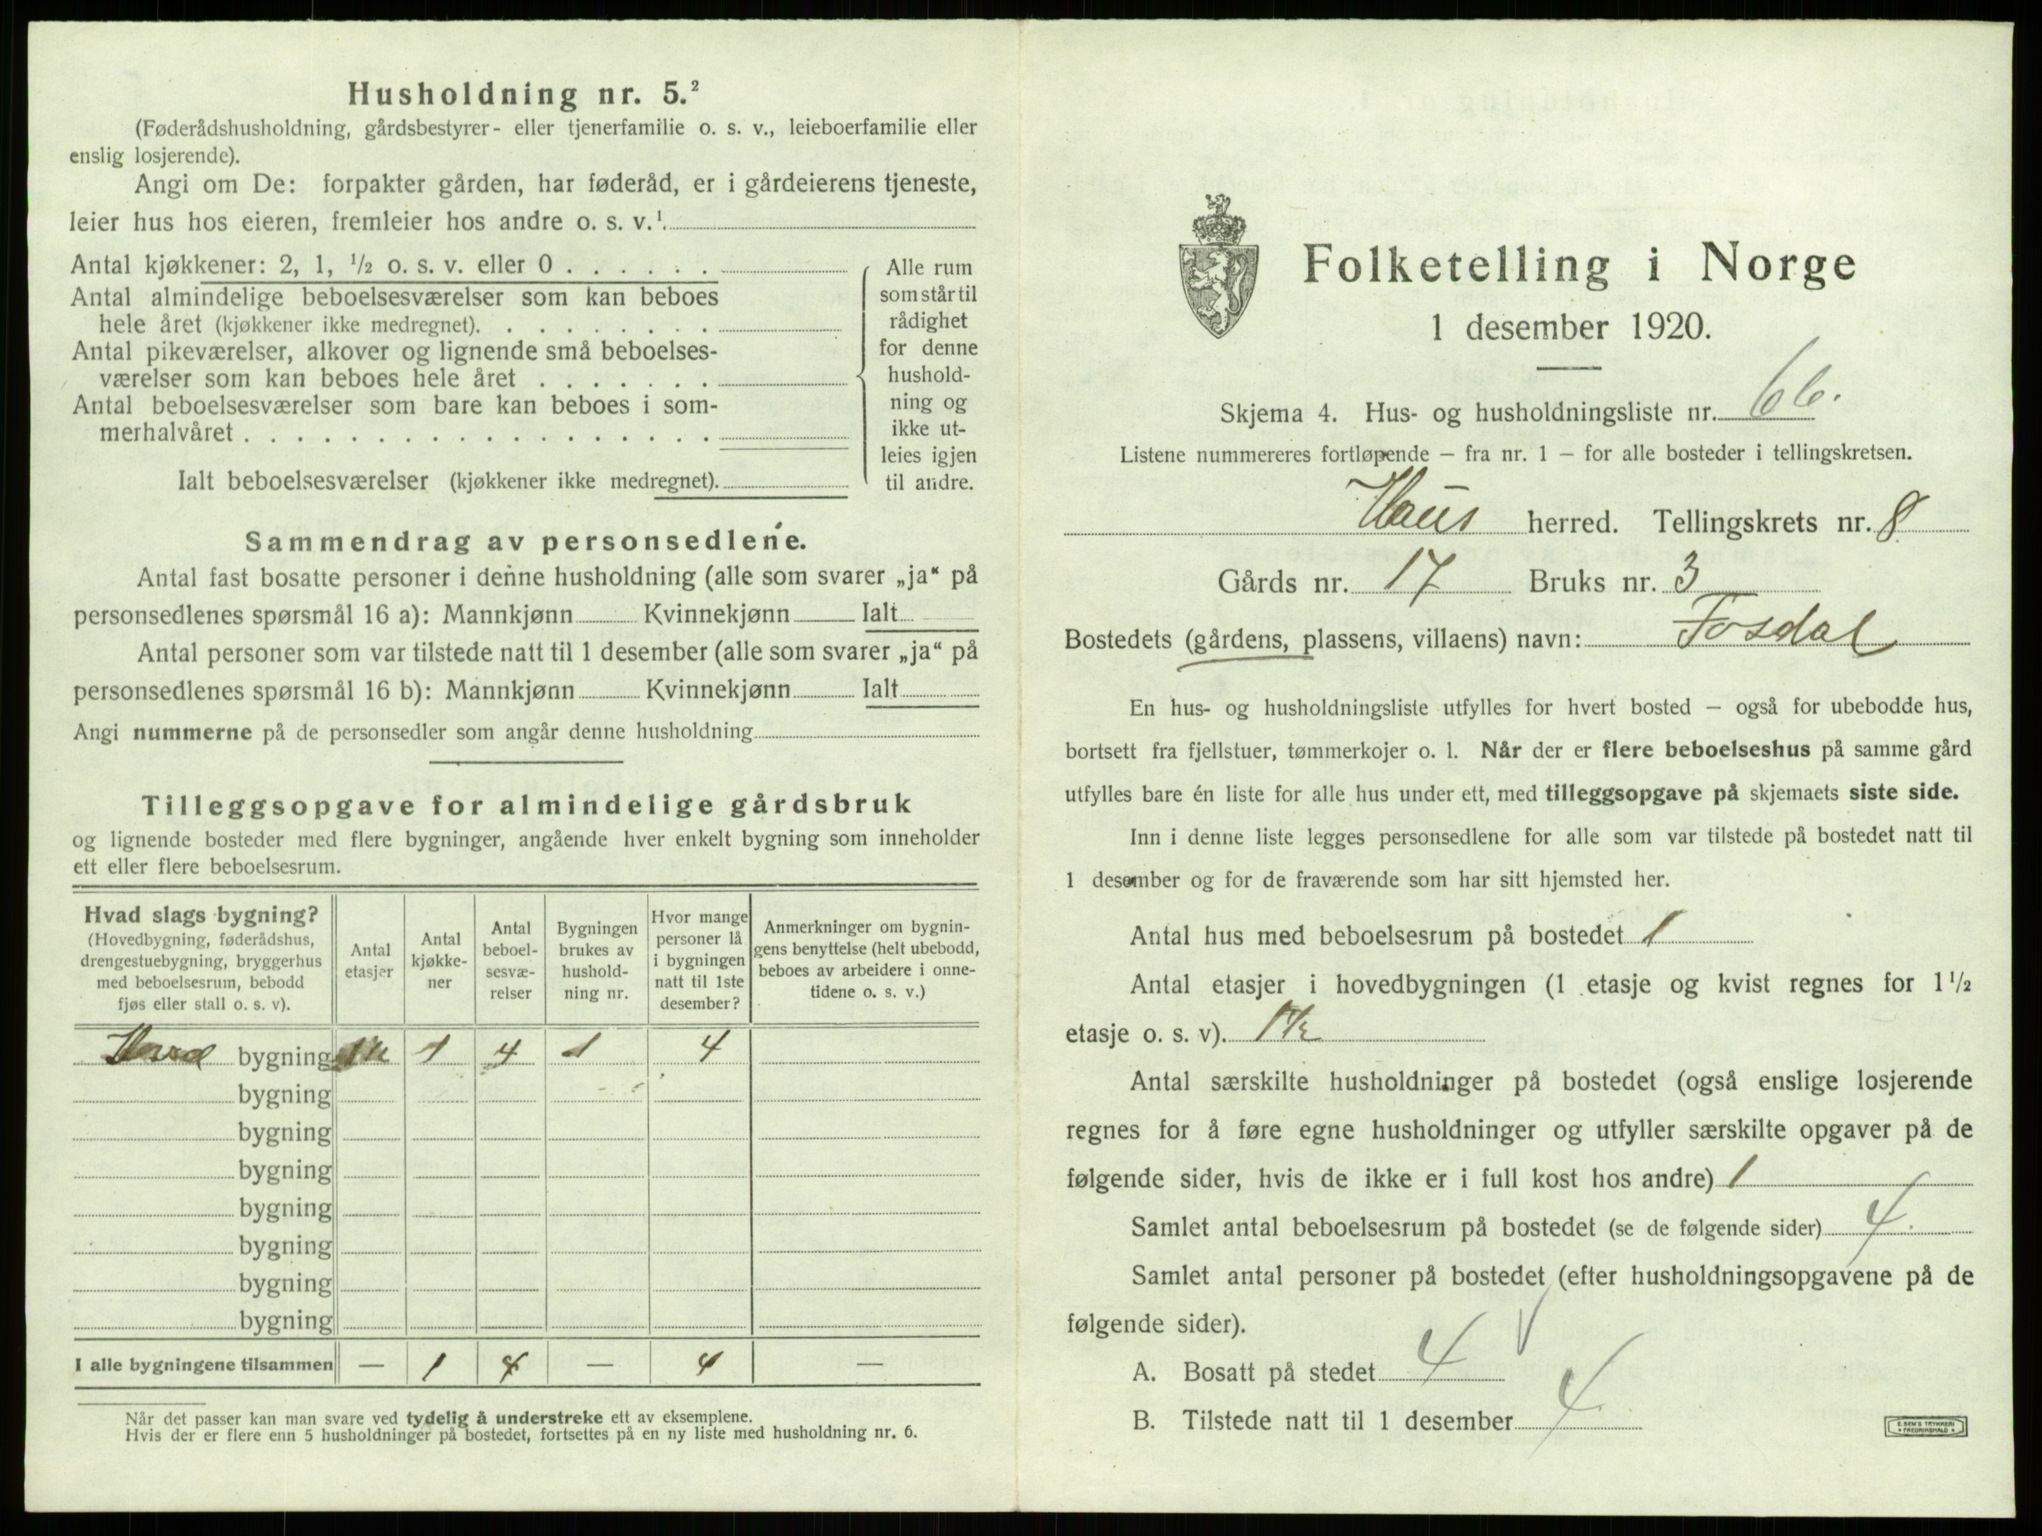 Husholdning nr. 5.²
(Føderådshusholdning, gårdsbestyrer- eller tjenerfamilie o. s. v., leieboerfamilie eller
enslig losjerende).
Angi om De: forpakter gården, har føderåd, er i gårdeierens tjeneste,
leier hus hos eieren, fremleier hos andre o. s. v.¹.
Antal kjøkkener: 2, 1, ½ o. s. v. eller 0 . . . . . .
Antal almindelige beboelsesværelser som kan beboes
hele året (kjøkkener ikke medregnet). . . . . . . . .
Antal pikeværelser, alkover og lignende små beboelses-
værelser som kan beboes hele året . . . . . . .
Antal beboelsesværelser som bare kan beboes i som-
merhalvåret . . . . . . . . . . . . . . . . . .
Ialt beboelsesværelser (kjøkkener ikke medregnet).
Alle rum
som står til
rådighet
for denne
hushold-
ning og
ikke ut-
leies igjen
til andre.
Sammendrag av personsedlene.
Antal fast bosatte personer i denne husholdning (alle som svarer „ja“ på
personsedlenes spørsmål 16 a): Mannkjønn Kvinnekjønn Ialt
Antal personer som var tilstede natt til 1 desember (alle som svarer „ja“ på
personsedlenes spørsmål 16 b): Mannkjønn Kvinnekjønn Ialt
Angi nummerne på de personsedler som angår denne husholdning
Tilleggsopgave for almindelige gårdsbruk
og lignende bosteder med flere bygninger, angående hver enkelt bygning som inneholder
ett eller flere beboelsesrum.
Hvad slags bygning?
(Hovedbygning, føderådshus,
drengestuebygning, bryggerhus
med beboelsesrum, bebodd
fjøs eller stall o. s. v).
Antal
etasjer
Antal
kjøkke-
ner
Antal
beboel-
sesvæ-
relser
Bygningen
brukes av
hushold-
ning nr.
Hvor mange
personer lå
i bygningen
natt til 1ste
desember?
Anmerkninger om bygnin-
gens benyttelse (helt ubebodd,
beboes av arbeidere i onne-
tidene o. s. v.)
Hoved bygning 1½ 1 4 1 4
bygning
bygning
bygning
bygning
bygning
bygning
bygning
I alle bygningene tilsammen — 1 4 — 4 —
Når det passer kan man svare ved tydelig å understreke ett av eksemplene.
Hvis der er flere enn 5 husholdninger på bostedet, fortsettes på en ny liste med husholdning nr. 6.
Folketelling i Norge
1 desember 1920.
Skjema 4. Hus- og husholdningsliste nr. 66.
Listene nummereres fortløpende – fra nr. 1 – for alle bosteder i tellingskretsen.
Haus herred. Tellingskrets nr. 8
Gårds nr. 17 Bruks nr. 3
Bostedets (gårdens, plassens, villaens) navn: Fosdal
En hus- og husholdningsliste utfylles for hvert bosted – også for ubebodde hus,
bortsett fra fjellstuer, tømmerkojer o. l. Når der er flere beboelseshus på samme gård
utfylles bare én liste for alle hus under ett, med tilleggsopgave på skjemaets siste side.
Inn i denne liste legges personsedlene for alle som var tilstede på bostedet natt til
1 desember og for de fraværende som har sitt hjemsted her.
Antal hus med beboelsesrum på bostedet 1
Antal etasjer i hovedbygningen (1 etasje og kvist regnes for 1½
etasje o. s. v). 1½
Antal særskilte husholdninger på bostedet (også enslige losjerende
regnes for å føre egne husholdninger og utfyller særskilte opgaver på de
følgende sider, hvis de ikke er i full kost hos andre) 1
Samlet antal beboelsesrum på bostedet (se de følgende sider) 4.
Samlet antal personer på bostedet (efter husholdningsopgavene på de
følgende sider).
A. Bosatt på stedet 4
B. Tilstede natt til 1 desember 4
E. SEM'S TRYKKERI
FREDRIKSHALD